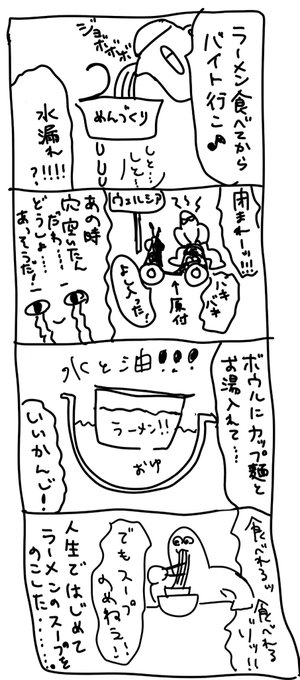 ラーメン食べてから
バイト行こ♪
ジョボボボボ
めんづくり
しと…
しと…
水漏れ
?!!!!
閉まれーッ!!!
ウェルシア
バキ
バキ
↑
原付
よょった!
あの時
穴空いたん
だわ……
どうしょ……
あってうだ!
ボウルにカップ麺と
お湯入れて……
水と油!!!
ラーメン!!
おゆ
いいかんじ!
食べれるッ
食べれる
ッッ!!
でもスープ
のめねぇ!!
人生ではじめて
ラーメンのスープを
のこした……